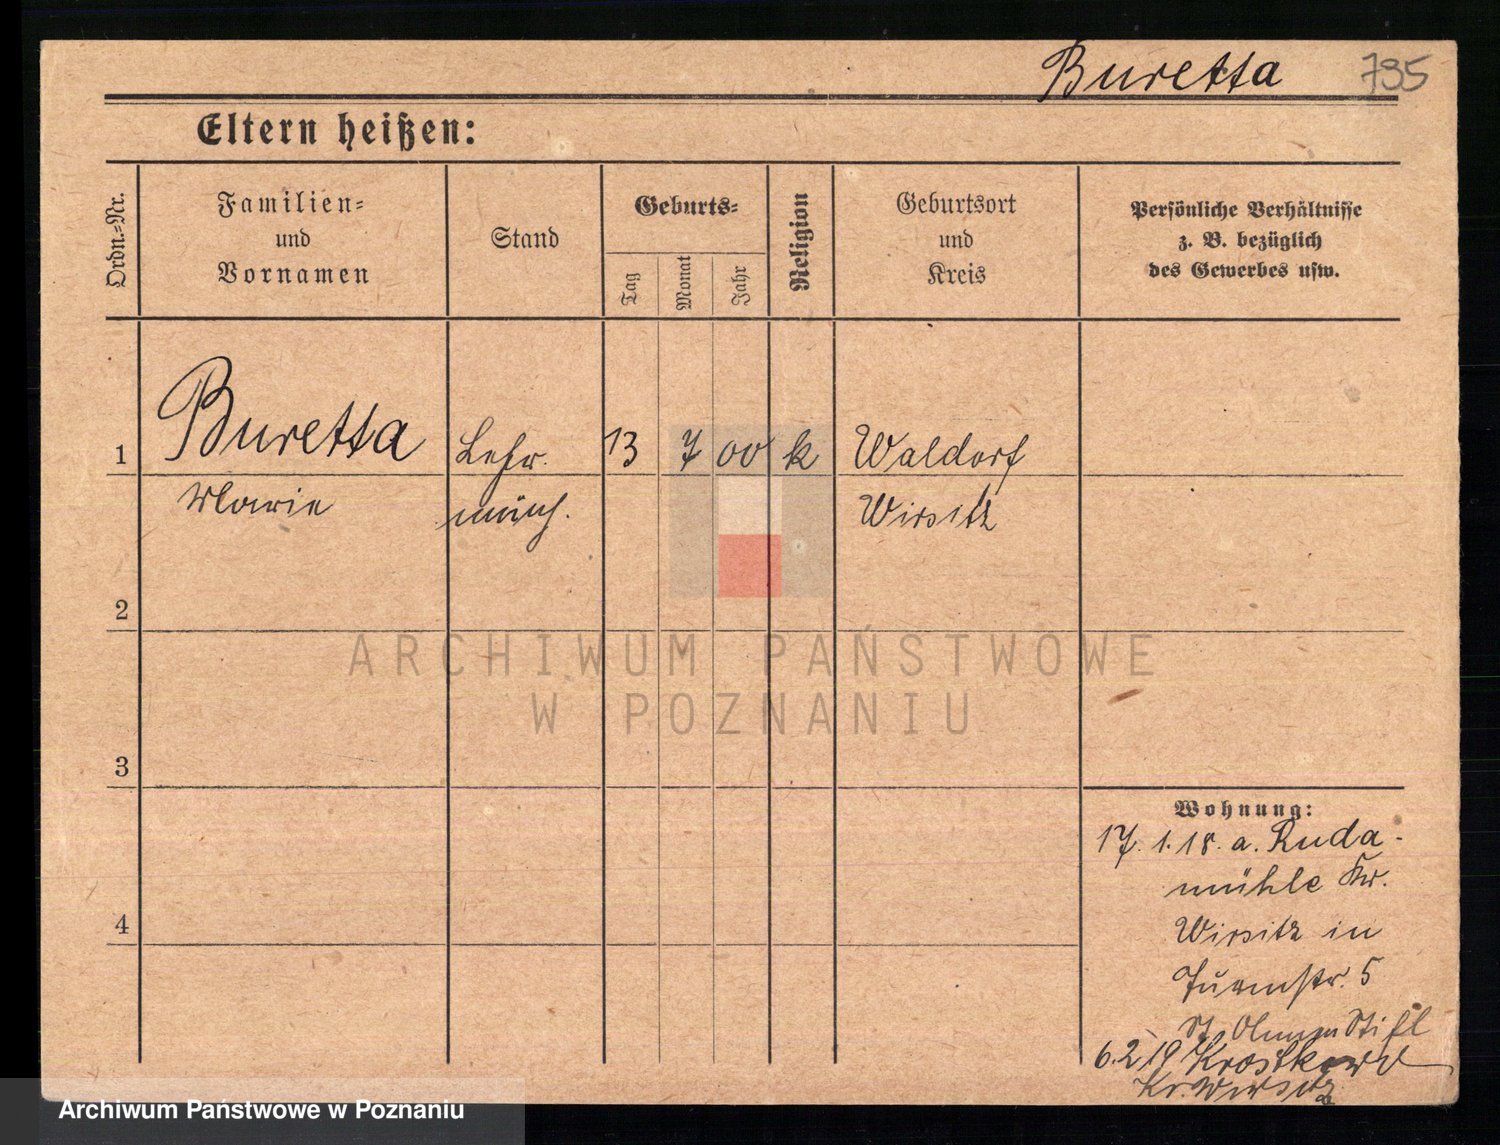 Buretta 795
Eltern heißen:
Ordn.-Nr.
Familien-
und
Vornamen
Stand
Geburts-
Tag
Monat
Jahr
Religion
Geburtsort
und
Kreis
Persönliche Verhältnisse
z. B. bezüglich
des Gewerbes usw.
1 Buretta Lehr. 13 7 00 k Waldorf
Marie mäch. Wirsitz
2
3
4
Wohnung:
17. 1. 18. a. Ruda-
mühle Kr.
Wirsitz in
Turmstr. 5
St. Stift
6.2.19 Krostkowo
Kr. Wirsitz
ARCHIWUM PAŃSTWOWE
W POZNANIU
Archiwum Państwowe w Poznaniu